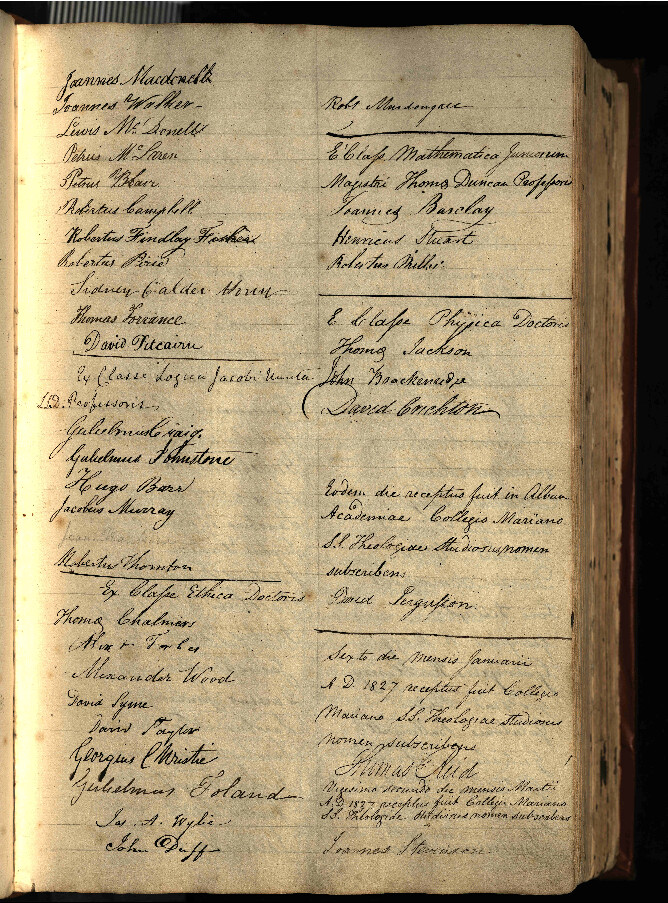 Joannes Macdonell
Joannes Walker
Lewis McDonell
Petrus McLaren
Petrus Blair
Robertus Campbell
Robertus Findlay Fisher
Robertus Pirie
Sidney Calder
Thomas Torrance
David Pitcairn
Ex Classe Logica Jacobi
LLD. Professoris
Gulielmus Craig
Gulielmus Johnstone
Hugo Barr
Jacobus Murray
Robertus Thornton
Ex Classe Ethica Doctoris
Thomæ Chalmers
Alexr Forbes
Alexander Wood
David Syme
David Taylor
Georgius Christie
Gulielmus Toland
Jas. A. Wylie
John Duff
Robt Macdougall
E Classe Mathematica Juniorum
Magistri Thomæ Duncan Professoris
Joannes Barclay
Henricus Stuart
Robertus
E Classe Physica Doctoris
Thomæ Jackson
John Brackenridge
David Crichton
Eodem die receptus fuit in Album
Academiae Collegio Mariano
S.S. Theologiae Studiosus nomen
subscribens
David Ferguson
Sexto die mensis Januarii
A.D. 1827 receptus fuit Collegio
Mariano S.S. Theologiae studiosus
nomen subscribens
Thomas Reid
Vigesimo secundo die mensis Martii
A.D. 1827 receptus fuit Collegio Mariano
S.S. Theologiae Studiosus nomen subscribens
Joannes Stevenson